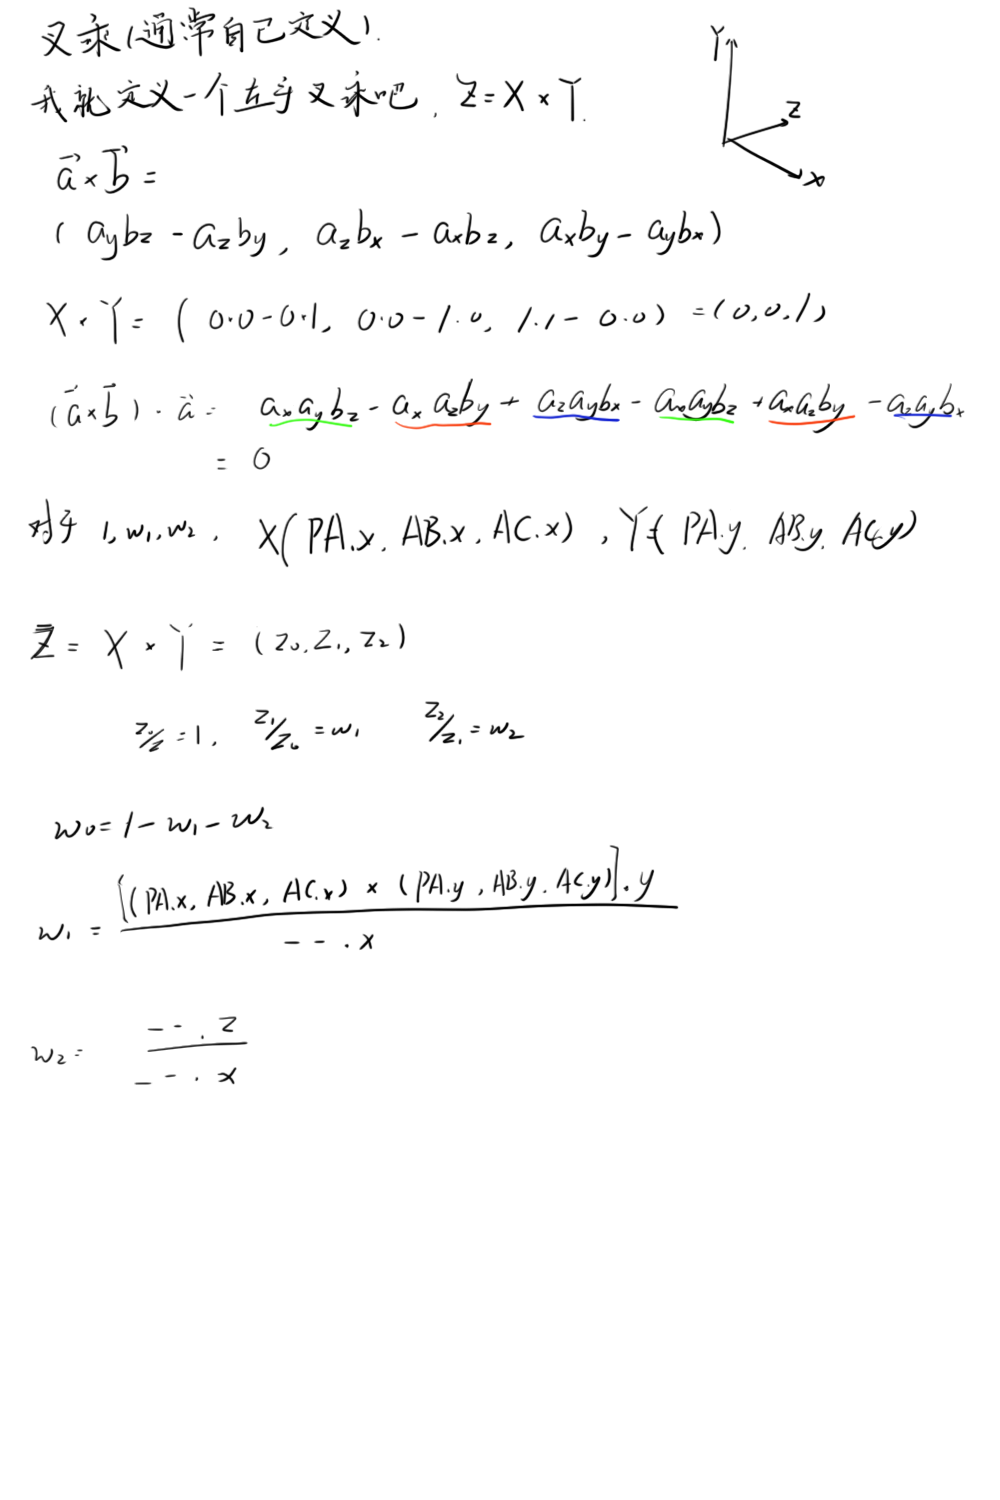 叉乘(通常自己定义).
我就定义一个左手叉乘吧. Z=X×Y.
Y
Z
X
a⃗×b⃗=
(aybz-azby, azbx-axbz, axby-aybx)
X·Y=(0·0-0·1, 0·0-1·0, 1·1-0·0)=(0,0,1)
(a⃗×b⃗)·a⃗= axaybz-axazby+azaybx-axaybz+axazby-azaybx
=0
对于 1,w1,w2, X(PA.x, AB.x, AC.x), Y=(PA.y, AB.y, AC.y)
Z=X×Y=(Z0,Z1,Z2)
Z0/Z=1, Z1/Z0=w1 Z2/Z1=w2
w0=1-w1-w2
w1=[(PA.x, AB.x, AC.x)×(PA.y, AB.y, AC.y)].y
--.x
w2= --.z
--.x